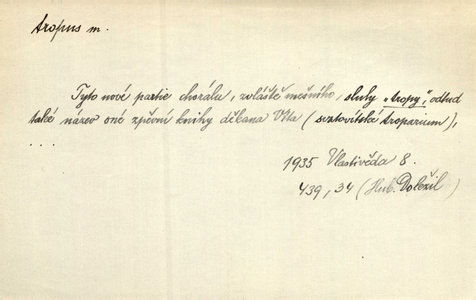 tropus m.
Tyto nové partie chorálu, zvláště mešního, sluly „tropy“, odtud
také název oné zpěvní knihy děkana Víta (svatovítské troparium),
....
1935 Vlastivěda 8.
439, 34 (Hub. Doležil)